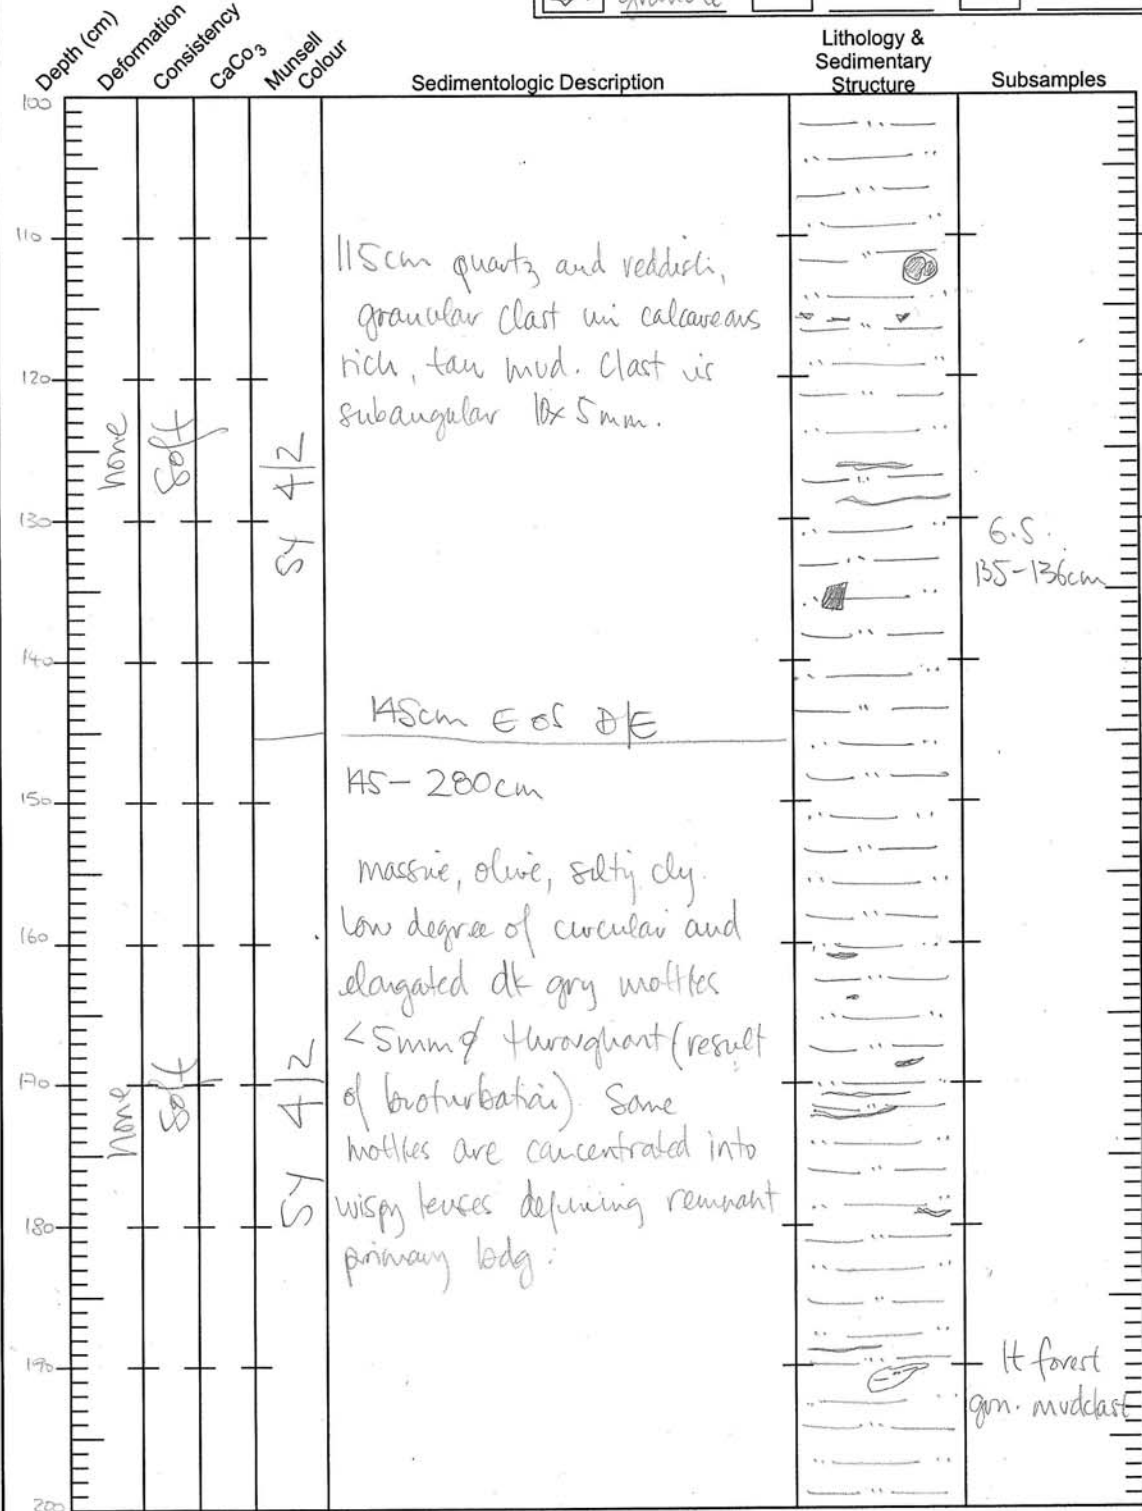 granule
Depth (cm)
Deformation
Consistency
CaCo3
Munsell
Colour
Sedimentologic Description
Lithology &
Sedimentary
Structure
Subsamples
100
110
120
130
140
150
160
170
180
190
200
115cm quartz and reddish,
granular clast in calcareous
rich, tan mud. Clast is
subangular 10x5mm.
none
Soft
5Y 4/2
G.S.
135-136cm
145cm E OS D/E
145-280cm
massive, olive, silty cly.
Low degree of circular and
elongated dk gry mottles
<5mmϕ throughout (result
of bioturbation). Some
mottles are concentrated into
wispy lenses defining remnant
primary bdg.
None
Soft
5Y 4/2
lt forest
grn. mudclast